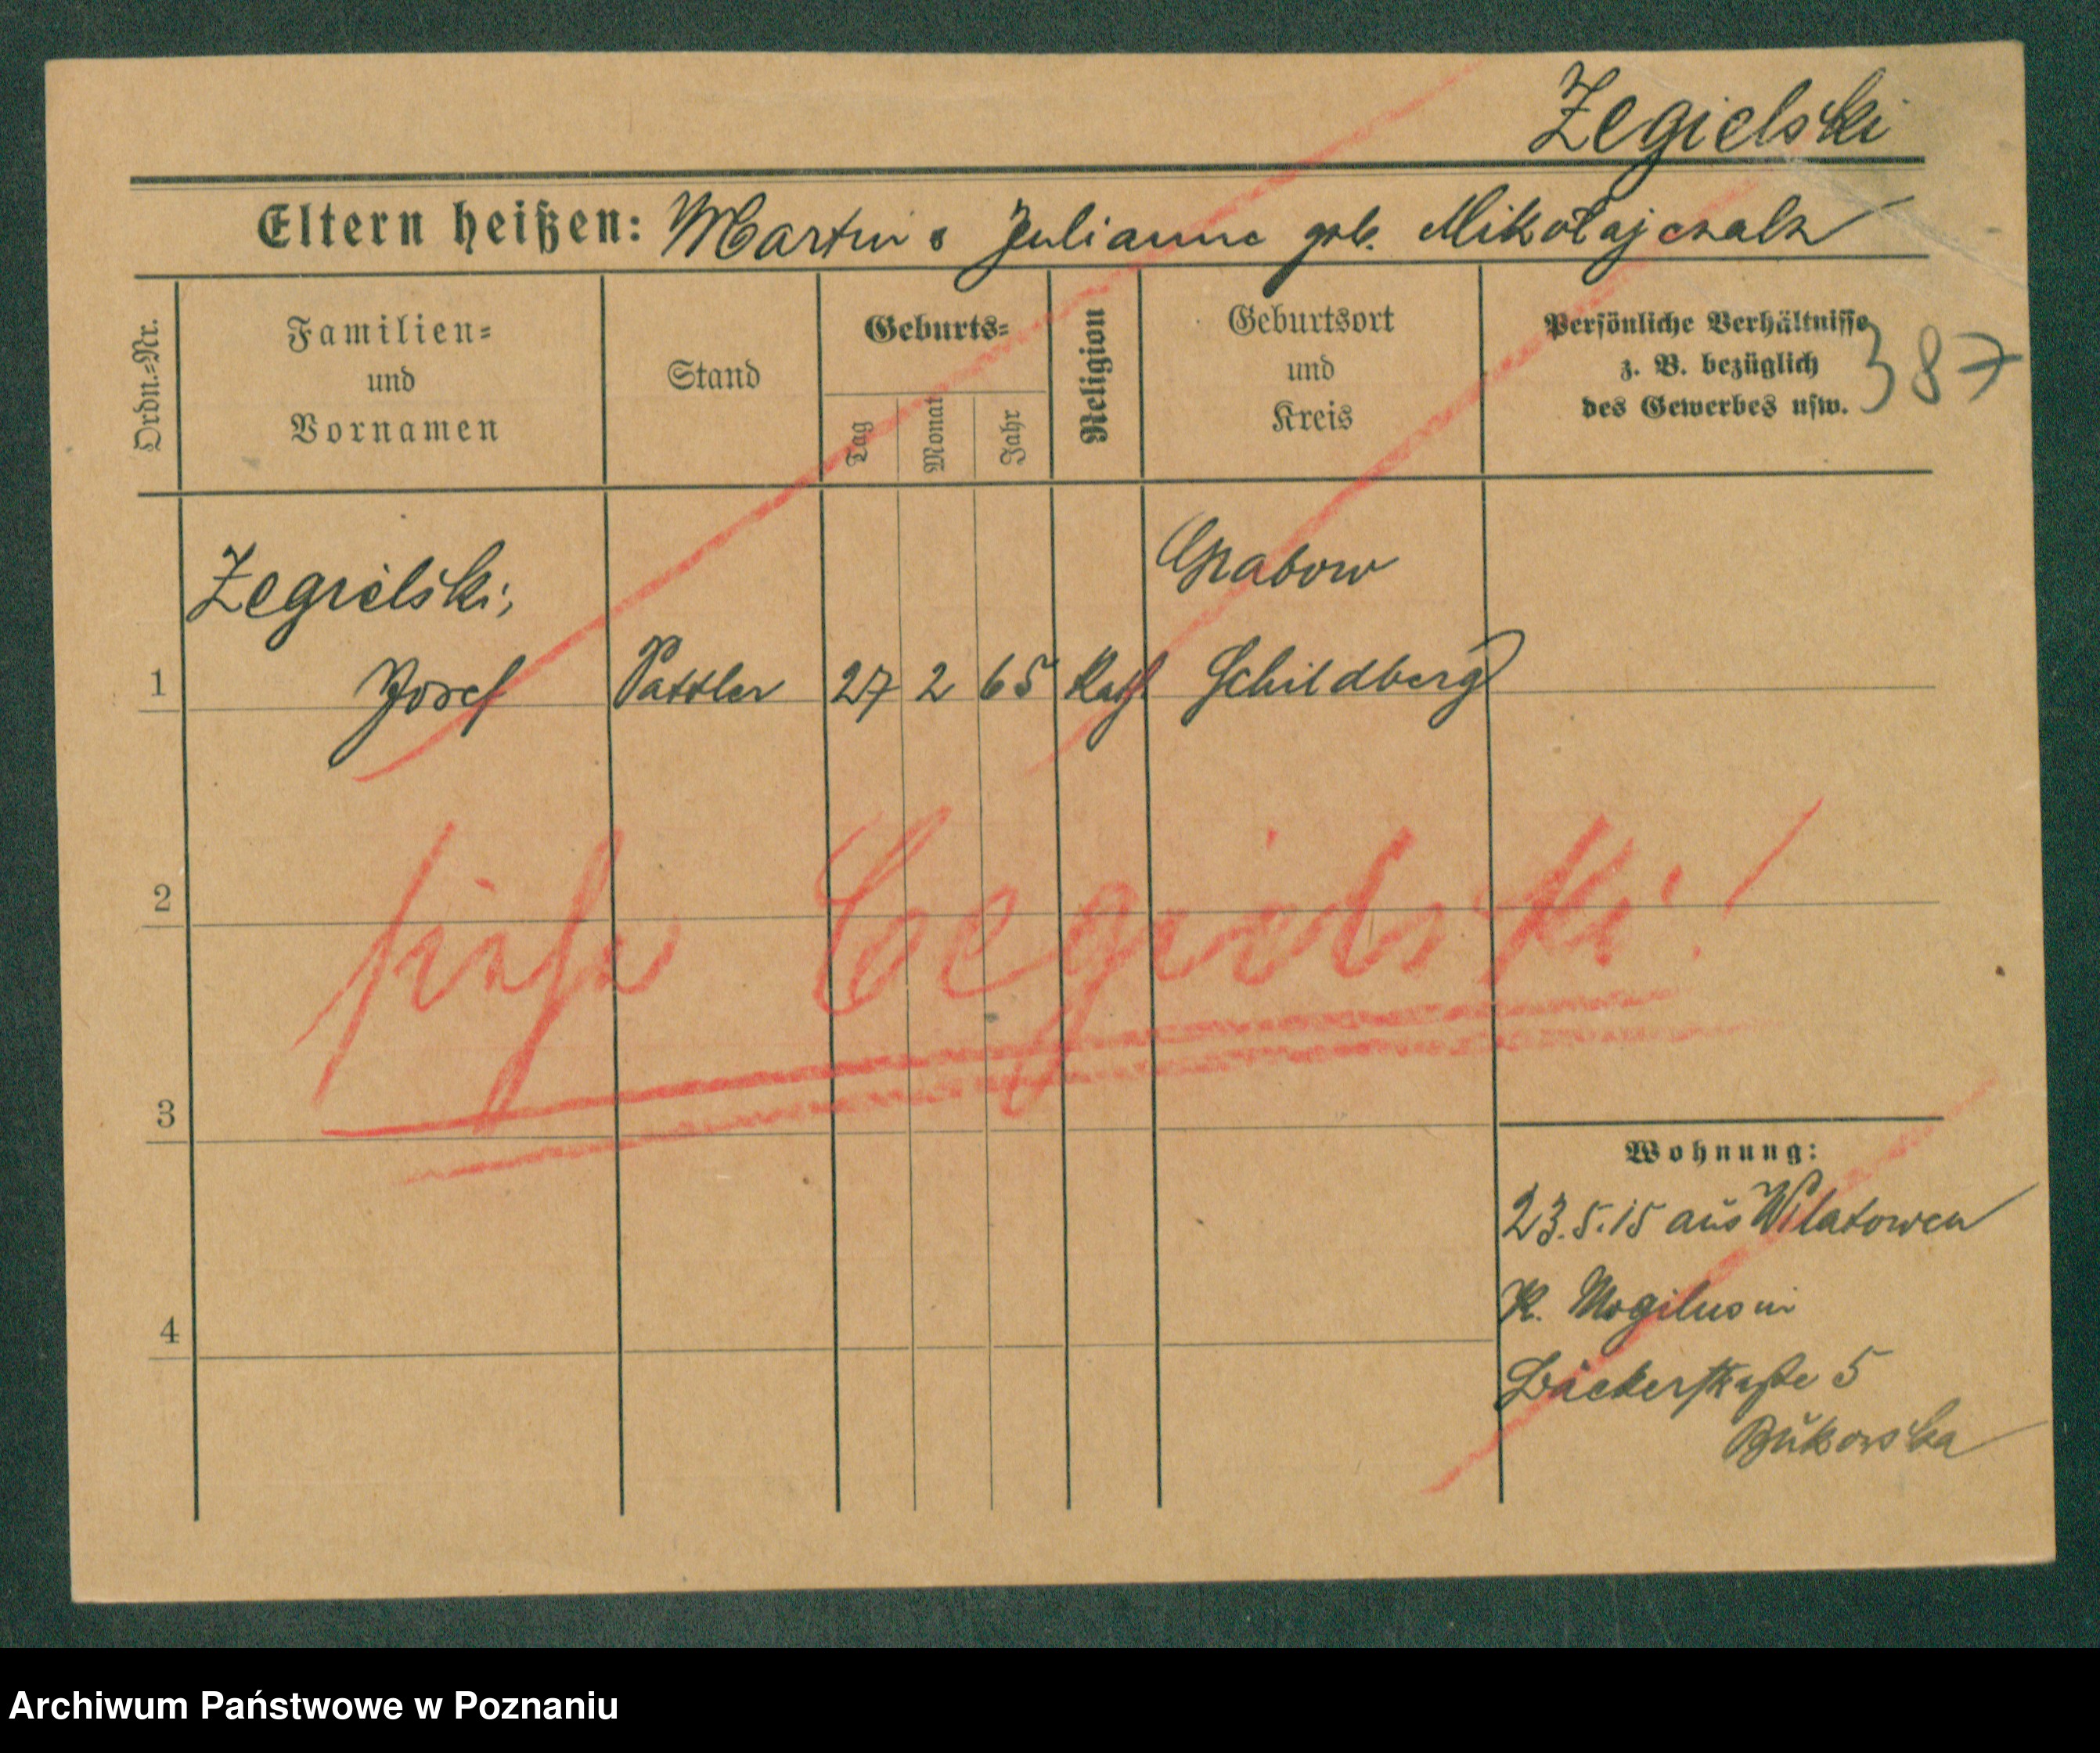 Zegielski
Eltern heißen: Martin & Julianne geb. Mikołajczak
387
Ordn.=Nr.
Familien=
und
Vornamen
Stand
Geburts=
Tag
Monat
Jahr
Religion
Geburtsort
und
Kreis
Persönliche Verhältnisse
z. B. bezüglich
des Gewerbes usw.
Zegielski,
Grabow
1 Josef Sattler 27 2 65 Kath Schildberg
2
siehe Cegielski!
3
Wohnung:
23.5.15 aus Wilatowen
K. Mogilno in
4
Bäckerstraße 5
Bukowska
Archiwum Państwowe w Poznaniu